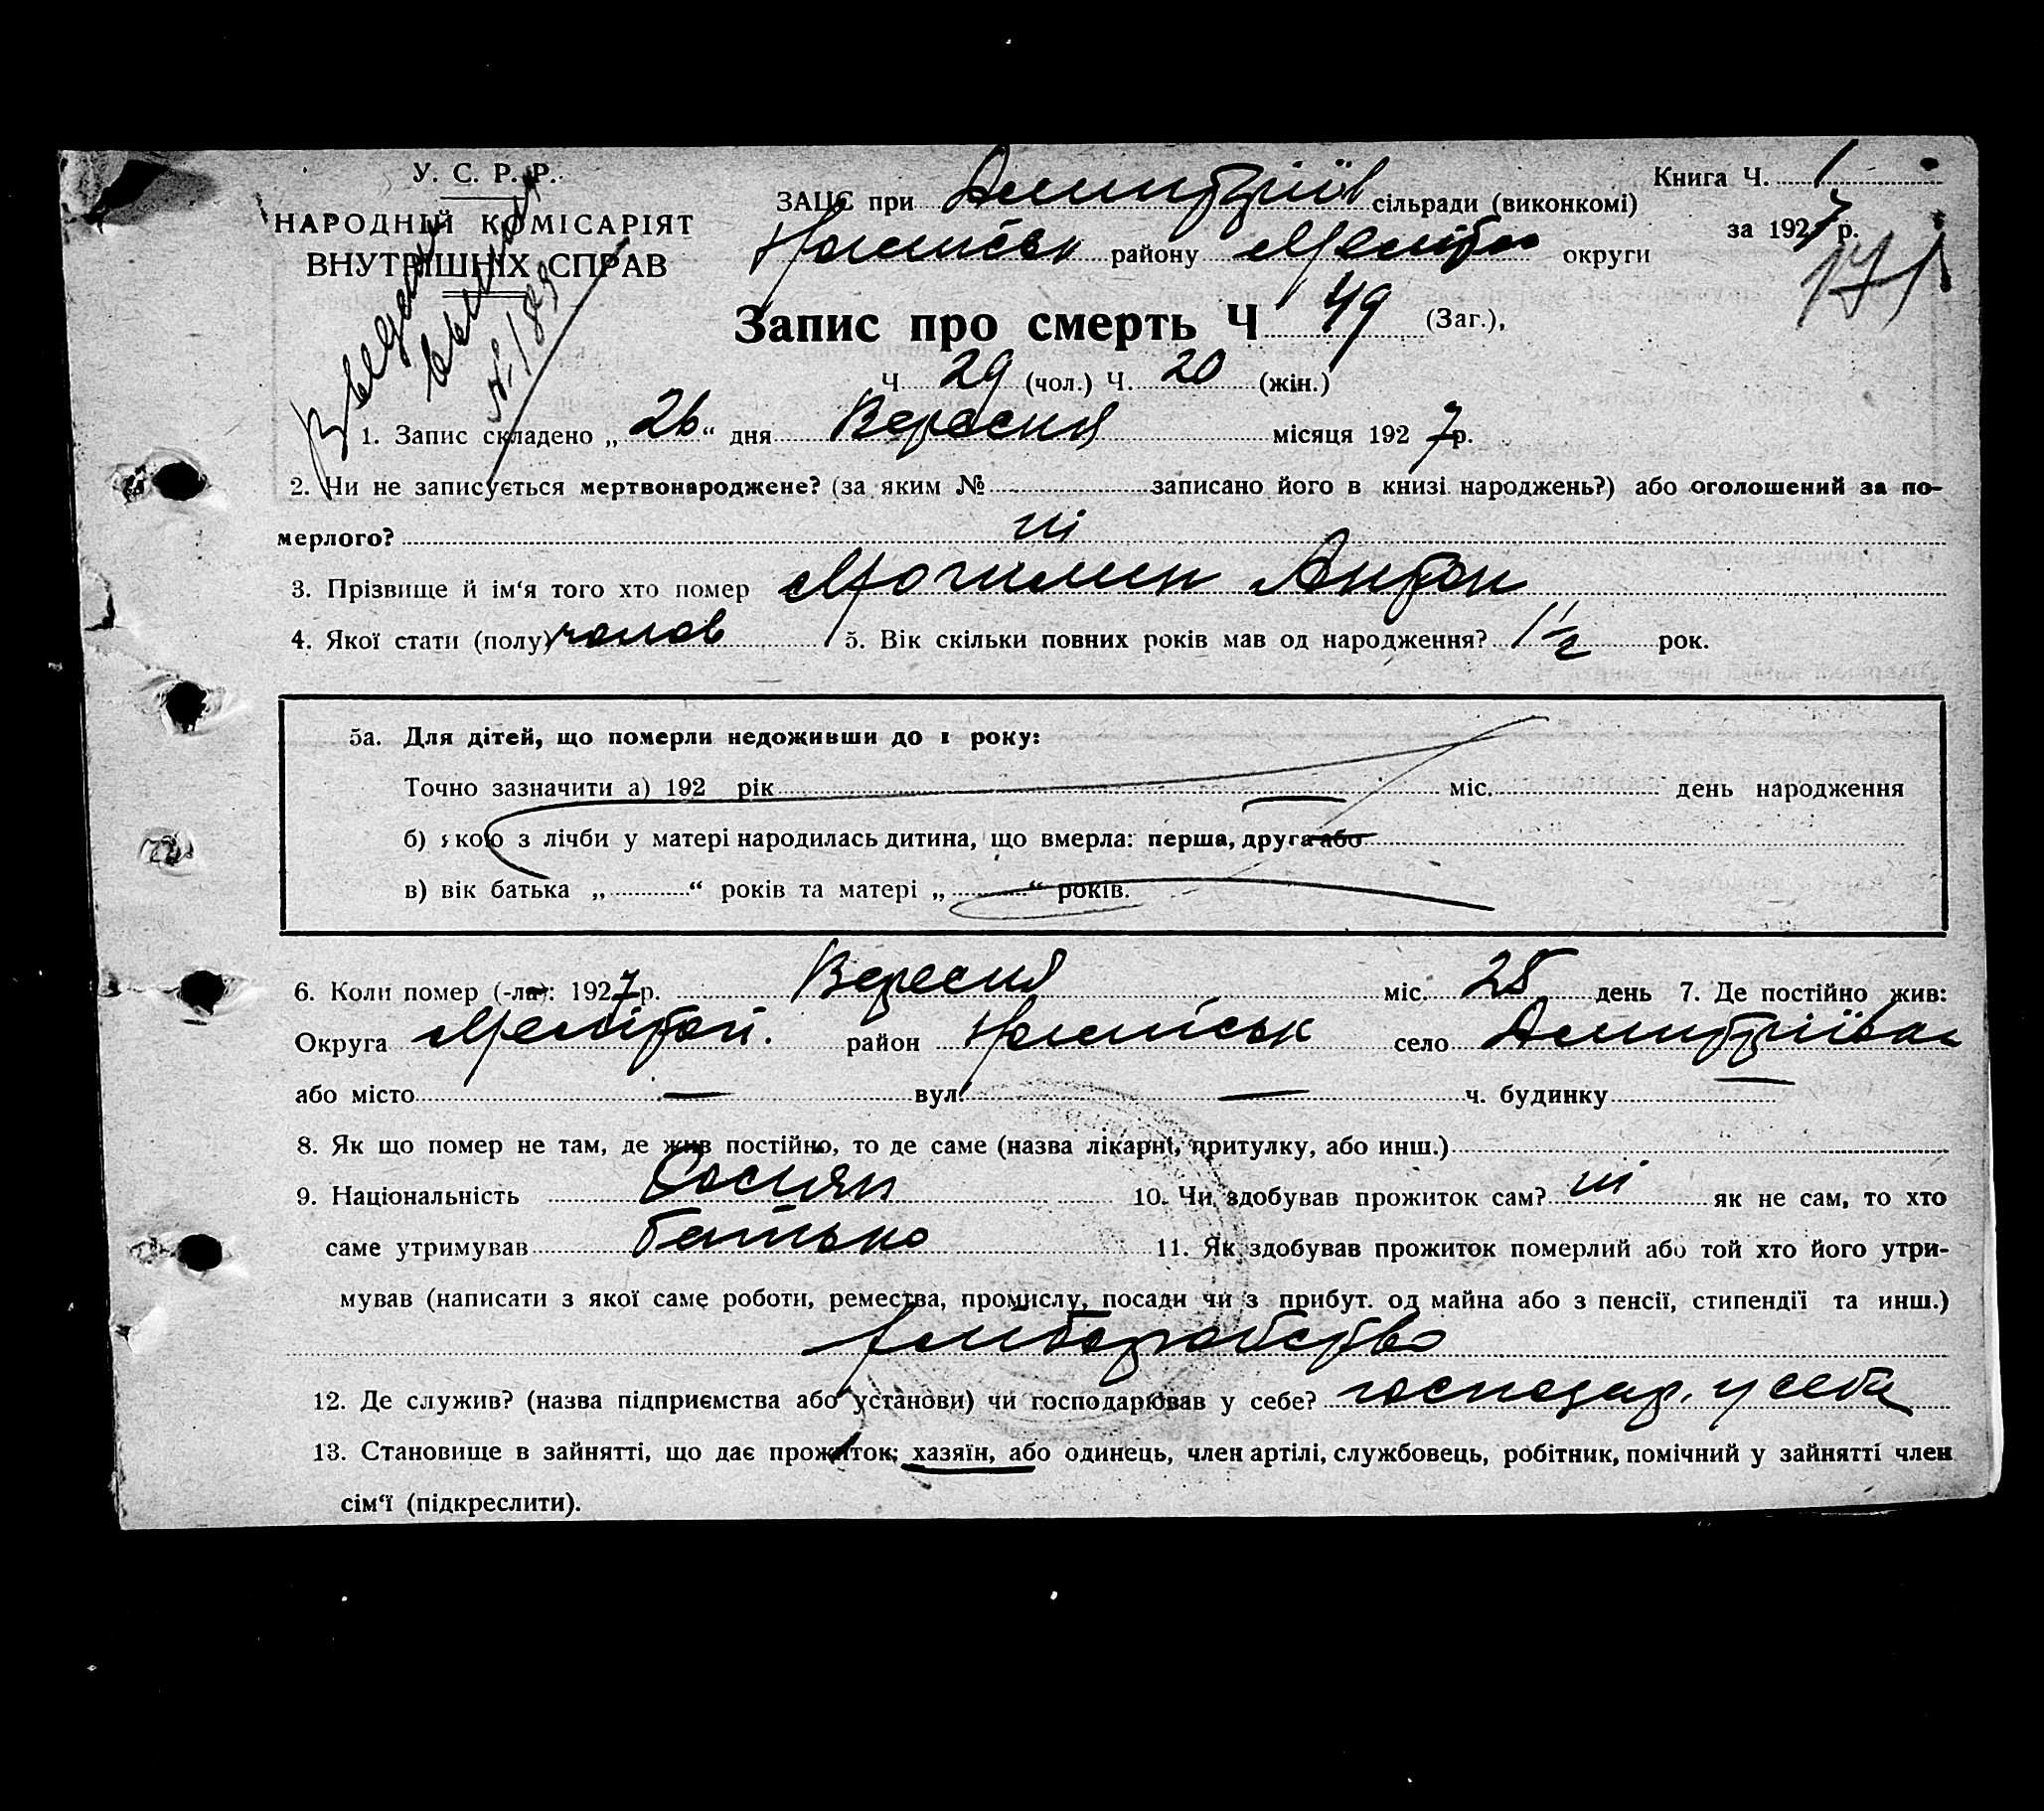 У. С. Р. Р.
НАРОДНІЙ КОМІСАРІЯТ
ВНУТРІШНІХ СПРАВ
Книга Ч. 1
за 1927 р.
171
ЗАЦС при Дмитріїв сільради (виконкомі)
району Меліт округи
Запис про смерть Ч 49 (Заг.),
Ч 29 (чол.) Ч. 20 (жін.)
1. Запис складено „ 26 “ дня Вересня місяця 1927 р.
2. Чи не записується мертвонароджене? (за яким № записано його в книзі народжень?) або оголошений за по-
мерлого? ні
3. Прізвище й ім‘я того хто помер Антон
4. Якої стати (полу) чолов 5. Вік скільки повних років мав од народження? 1 1/2 рок.
5а. Для дітей, що померли недоживши до 1 року:
Точно зазначити а) 192 рік міс. день народження
б) якою з лічби у матері народилась дитина, що вмерла: перша, друга або
в) вік батька „ “ років та матері „ “ років.
6. Коли помер (-ла): 1927 р. Вересня міс. 25 день 7. Де постійно жив:
Округа Мелітоп. район село Дмитріївка
або місто — вул. — ч. будинку —
8. Як що помер не там, де жив постійно, то де саме (назва лікарні, притулку, або инш.)
9. Національність Росіян 10. Чи здобував прожиток сам? ні як не сам, то хто
саме утримував батько 11. Як здобував прожиток померлий або той хто його утри-
мував (написати з якої саме роботи, ремества, промислу, посади чи з прибут. од майна або з пенсії, стипендії та инш.)
хліборобство
12. Де служив? (назва підприємства або установи) чи господарював у себе? господар. у себе
13. Становище в зайнятті, що дає прожиток: хазяїн, або одинець, член артілі, службовець, робітник, помічний у зайнятті член
сім‘ї (підкреслити).